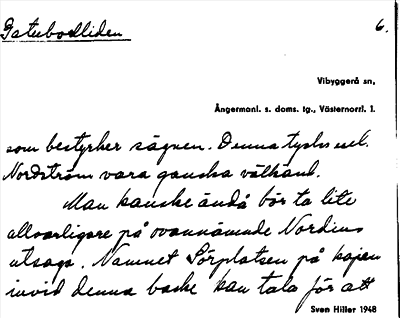 Gatubodliden 6.
Vibyggerå sn,
Ångermanl. s. doms. tg., Västernorrl. l.
som bestyrker sägnen. Denna tycks enl.
Nordström vara ganska välkänd.
Man kanske ändå bör ta lite
allvarligare på ovannämnde Nordins
utsago. Namnet Sörplatsen på kajen
invid denna backe kan tala för att
Sven Hiller 1948